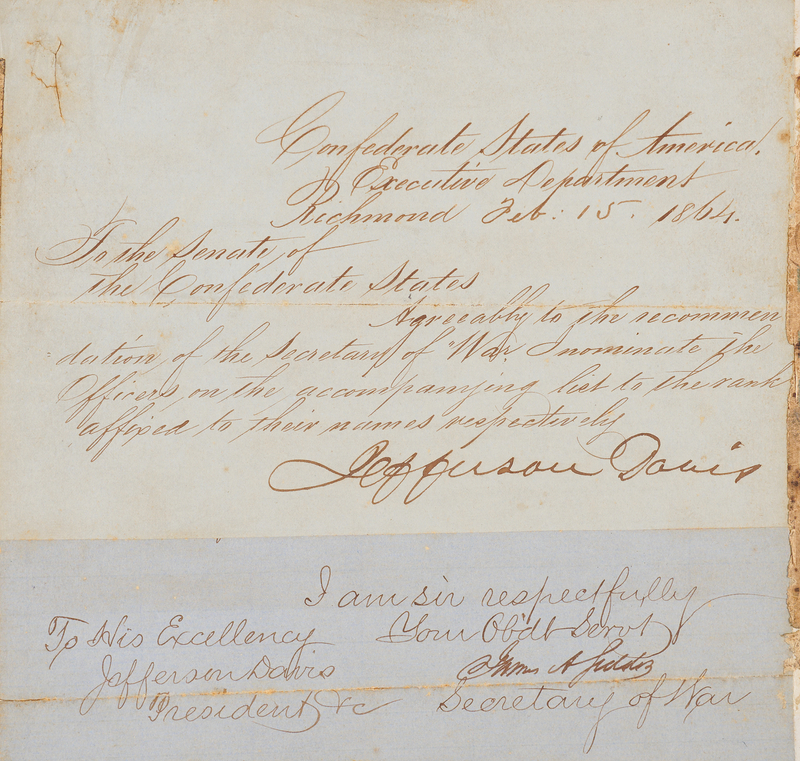 Confederate States of America,
Executive Department
Richmond Feb: 15. 1864.
To the Senate of
the Confederate States
Agreeably to the recommen
dation of the Secretary of War I nominate the
Officers, on the accompanying list to the rank
affixed to their names respectively
Jefferson Davis
I am sir respectfully
To His Excellency Your Obdt Servt
Jefferson Davis James A Seddon
President &c Secretary of War